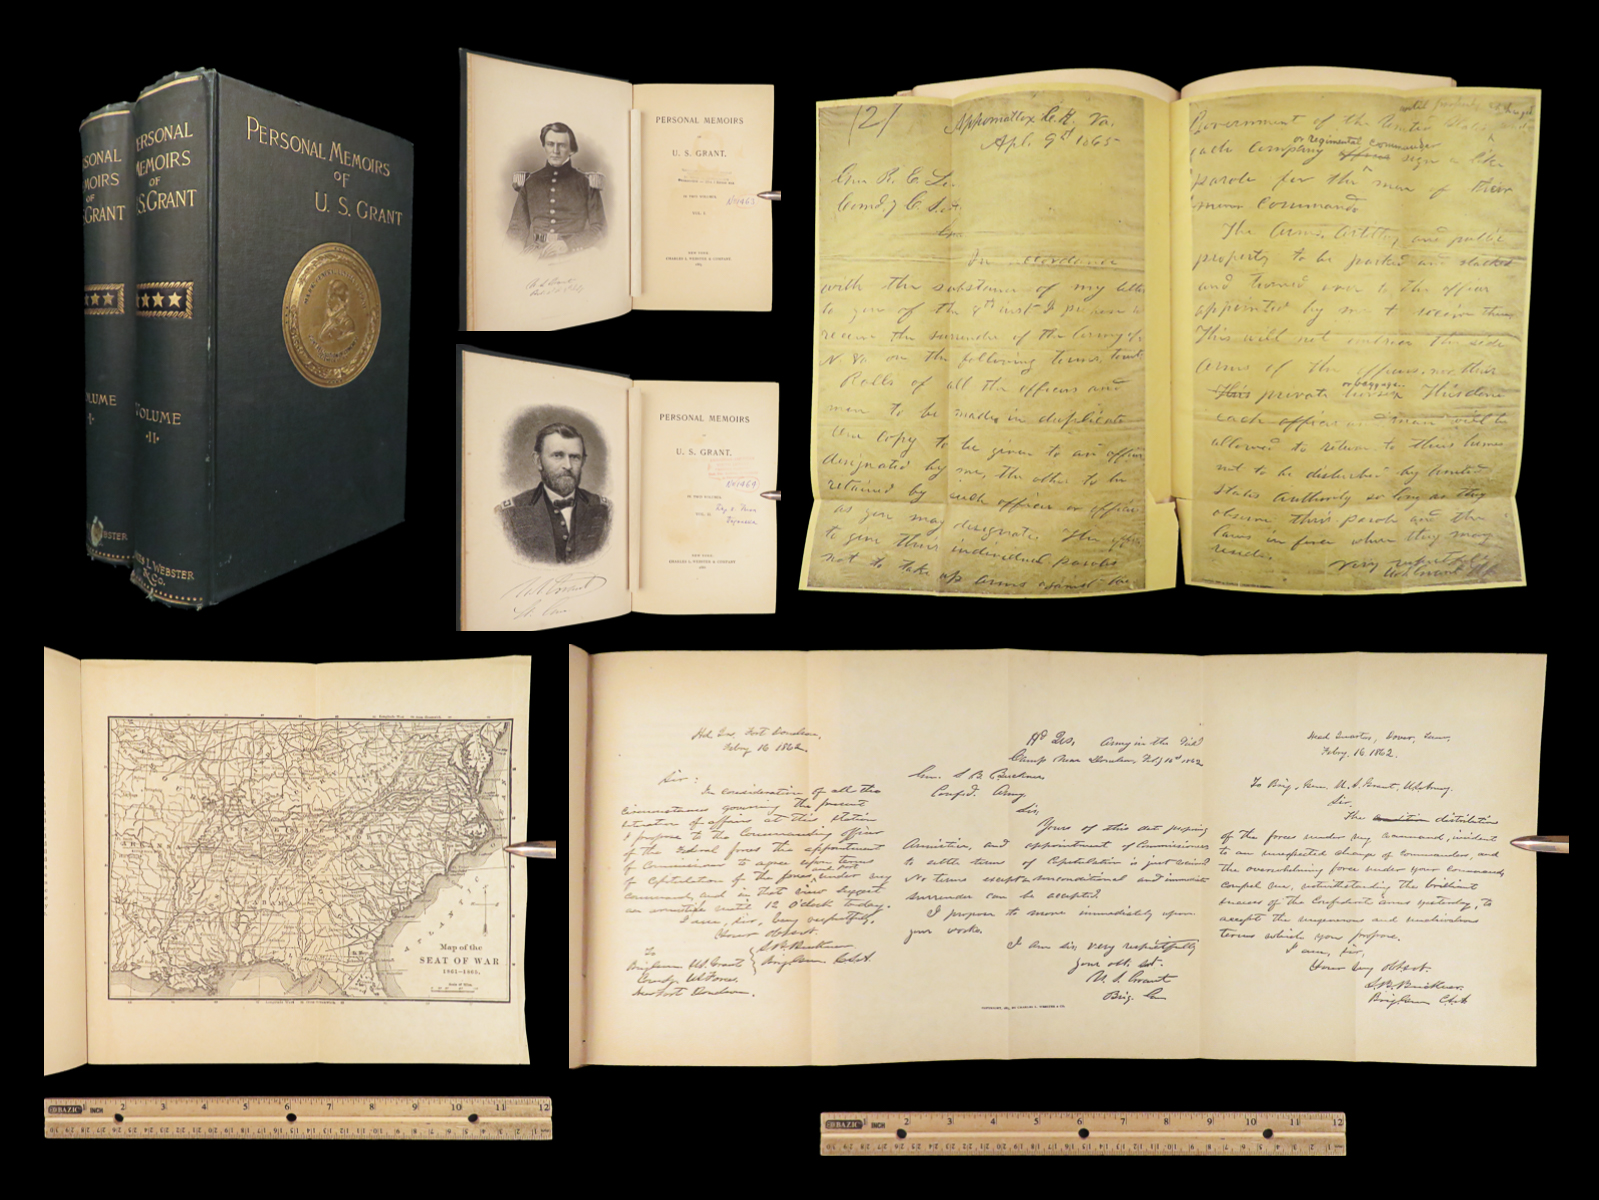 PERSONAL MEMOIRS
OF
U. S. GRANT
PERSONAL
MEMOIRS
OF
U.S. GRANT
VOLUME
·II·
WEBSTER
& Co.
SONAL
MOIRS
OF
GRANT
LUME
·I·
BSTER
PERSONAL MEMOIRS
OF
U. S. GRANT.
IN TWO VOLUMES
VOL. I.
NEW YORK
CHARLES L. WEBSTER & COMPANY
1885
PERSONAL MEMOIRS
OF
U. S. GRANT.
IN TWO VOLUMES
VOL. II.
NEW YORK
CHARLES L. WEBSTER & COMPANY
U. S. Grant
Lt. Gen
Appomattox C. H. Va.
Apl. 9th 1865
Gen. R. E. Lee
Comd.g C. S. A.
Gen.
In accordance
with the substance of my letter
to you of the 8th inst. I propose to
receive the surrender of the Army of
N. Va. on the following terms, towit:
Rolls of all the officers and
men to be made in duplicate
One copy to be given to an officer
designated by me, the other to be
retained by such officer or officers
as you may designate. The officers
to give their individual paroles
not to take up arms against the
Government of the United States
or regimental commander
each company officer sign a like
parole for the men of their
commands
The Arms, Artillery and public
property to be parked and stacked
and turned over to the officer
appointed by me to receive them
This will not embrace the side
Arms of the officers, nor their
or baggage
This private horses This done
each officer and man will be
allowed to return to their homes
not to be disturbed by United
States Authority so long as they
observe their parole and the
laws in force where they may
reside.
Very respectfully
Map of the
SEAT OF WAR
1861–1865.
Hd. Qrs. Fort Donelson,
Feby 16 1862.
Sir:
In consideration of all the
circumstances governing the present
situation of affairs at this station
I propose to the Commanding Officer
of the Federal forces the appointment
of Commissioners to agree upon terms
of capitulation of the forces and post under my
command, and in that view suggest
an armistice until 12 O'clock today.
I am, sir, very respectfully,
Your obdt. servt.
S. B. Buckner
Brig Gen C.S.A.
To
Brig Gen U. S. Grant
Comdg U.S. Forces.
Near Fort Donelson.
Hd Qrs, Army in the Field
Camp Near Donelson, Feby 16th 1862
Gen. S. B. Buckner
Confed. Army
Sir,
Yours of this date proposing
Armistice, and appointment of Commissioners
to settle terms of Capitulation is just received
No terms except unconditional and immediate
surrender can be accepted.
I propose to move immediately upon
your works.
I am sir, very respectfully
your obt. svt.
U. S. Grant
Brig. Gen
Head Quarters, Dover, Tenn,
Feby. 16 1862.
To Brig. Gen. U. S. Grant, U.S. Army.
Sir,
The condition distribution
of the forces under my command, incident
to an unexpected change of commanders, and
the overwhelming force under your command,
compel me, notwithstanding the brilliant
success of the Confederate arms yesterday, to
accept the ungenerous and unchivalrous
terms which you propose.
I am, sir,
Your very obdt. svt.
S. B. Buckner.
Brig Gen C.S.A
BAZIC INCH 2 3 4 5 6 7 8 9 10 11 12
BAZIC INCH 2 3 4 5 6 7 8 9 10 11 12